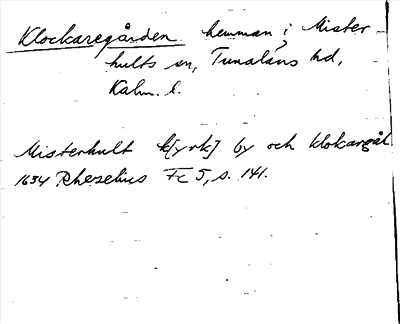 Klockaregården hemman i Mister-
hults sn, Tunaläns hd,
Kalm. l.
Misterhult k[yrk] by och klokargål
1634 Rhezelius Fc 5, s. 141.